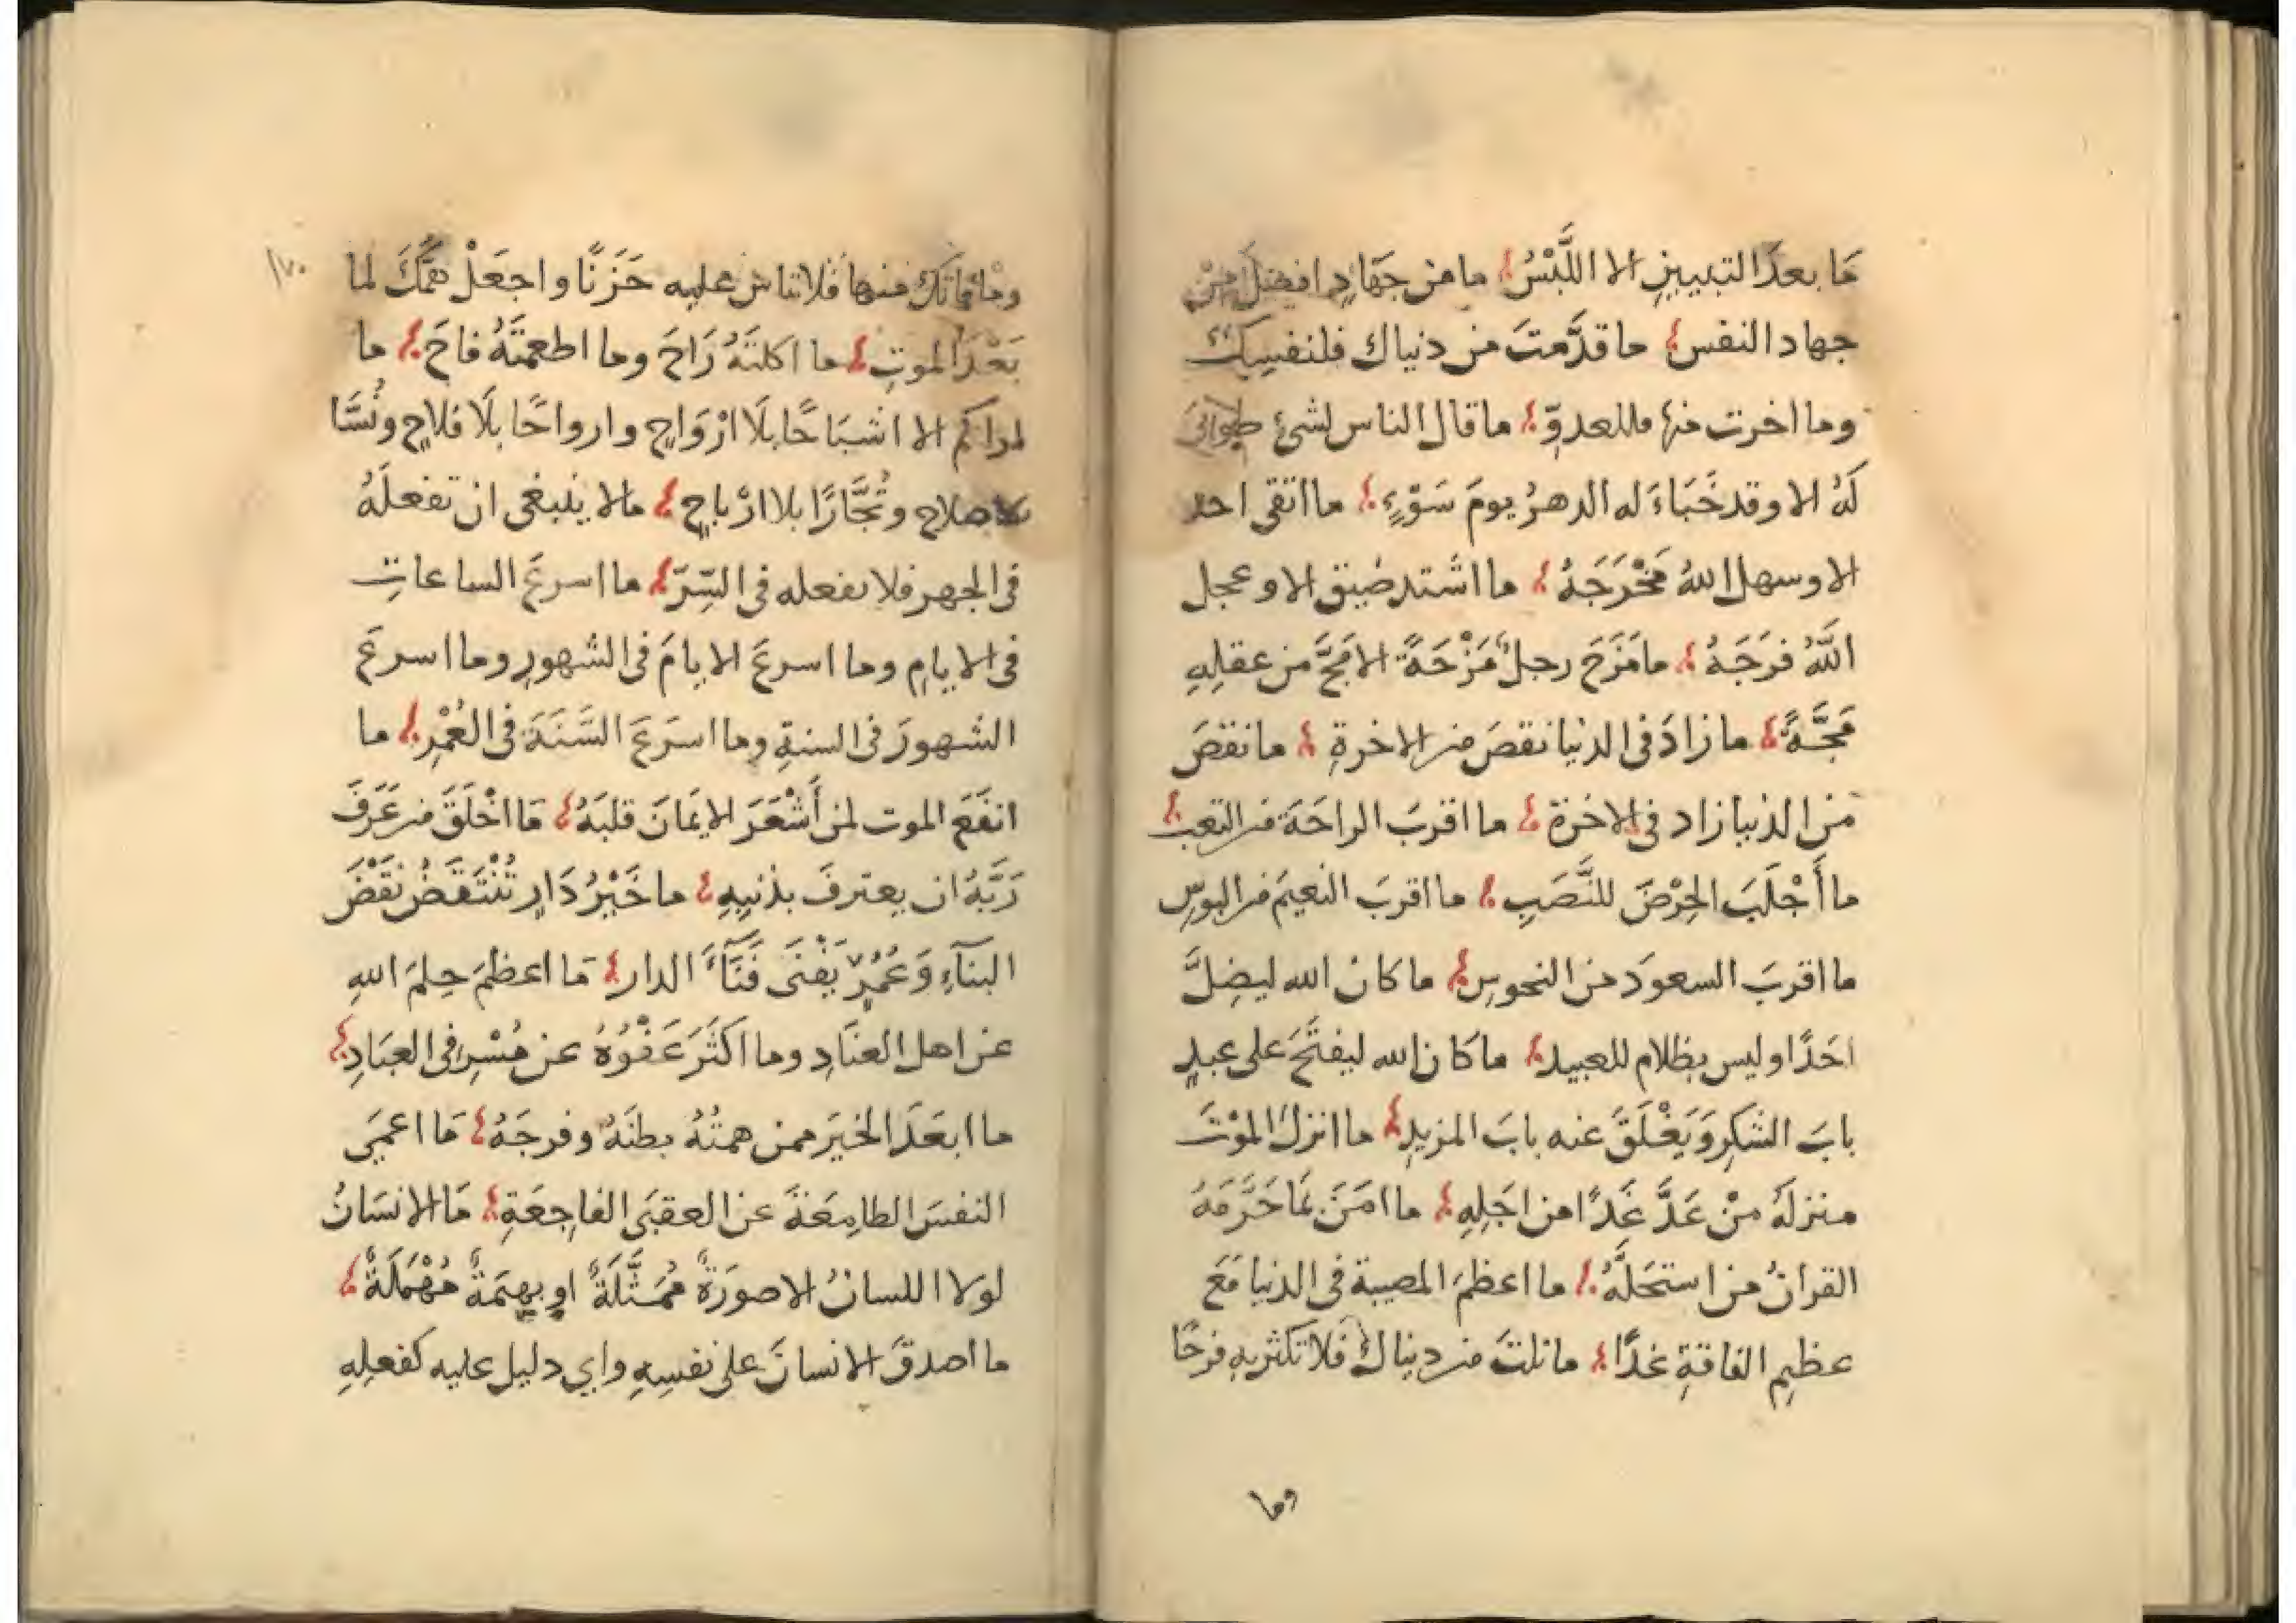 مَا بعدَ التبيينِ الا اللَّبْسُ؛ ما من جهَادٍ افضلَ مِنْ
جهاد النفس؛ ما قدَّمتَ من دنياك فلنفسِكَ
وما اخرت منها فللعدوّ؛ ما قال الناس لشئ طوبَى
لَهُ الا وقد خَبَاءَ له الدهرُ يومَ سَوْءٍ؛ ما اتقى احد
الا وسهل اللهُ مَخْرَجَهُ؛ ما اشتد ضيق الا وعجل
اللّهُ فرَجَهُ؛ ما مَزَحَ رجلٌ مَزْحَةً الا مَجَّ من عقلِهِ
مَجَّةً؛ ما زادَ في الدنيا نقصَ من الاخرةِ؛ ما نقصَ
من الدنيا زاد في الاخرة؛ ما اقربَ الراحَةَ من التعبِ؛
ما أَجْلَبَ الحِرْصَ للنَّصَبِ؛ ما اقربَ النعيمَ من البوسِ
ما اقربَ السعودَ من النحوسِ؛ ما كان الله ليضِلَّ
احَدًا وليس بظلام للعبيد؛ ما كان الله ليفتَحَ على عبدٍ
بابَ الشكرِ وَيَغْلَقَ عنه بابَ المزيدِ؛ ما انزلَ الموْتَ
منزلَهُ مِنْ عَدَّ غَدًا من اجَلِهِ؛ ما امَنَ بمَا حَرَّمَهُ
القرانُ من استحَلَّهُ؛ ما اعظمَ المصيبة في الدنيا مَعَ
عظيم الفاقةِ غدًا؛ ما نلتَ من دنياك فلا تكثر به فرحًا
وما
١٧٠
وما فاتكَ منها فلا تاسَ عليه حَزَنًا واجعَلْ همَّكَ لما
بَعْدَ الموتِ؛ ما اكلتَهُ رَاحَ وما اطعمتَهُ فاحَ؛ ما
لى اراكم الا اشبَاحًا بلَا ارْوَاحٍ وارواحًا بلَا فلاحٍ ونُسَّا
بلا صلاح وتُجَّارًا بلا ارْباحٍ؛ مالا ينبغى ان تفعلَهُ
في الجهر فلا تفعله في السِّرّ؛ ما اسرعَ الساعاتِ
في الايامِ وما اسرعَ الايامَ في الشهورِ وما اسرعَ
الشهورَ في السنةِ وما اسرَعَ السَّنَةَ في العُمْرِ؛ ما
انفَعَ الموت لمن أَشْعَرَ الايمَانَ قلبَهُ؛ مَا اخْلَقَ من عَرَفَ
رَبَّهُ ان يعترفَ بذنبِهِ؛ ما خَيْرُ دَارٍ تُنْتَقَضُ نَقْضَ
البنَآءِ وَعُمُرٍ يَفْنَى فَنَآءَ الدار؛ مَا اعظمَ حِلمَ اللهِ
عن اهل العنَادِ وما اكثَرَ عَفْوَهُ عن مُسْرِفى العبَادِ؛
ما ابعَدَ الخيَر ممن همتُهُ بطنَهُ وفرجَهُ؛ مَا اعمَى
النفسَ الطامِعَةَ عن العقبَى الفاجِعَةِ؛ مَا الانسَانُ
لولا اللسانُ الا صورَةٌ مُمَثَّلَةٌ او بهيمَةٌ مُهْمَلَةٌ؛
ما اصدقَ الانسانَ على نفسِهِ واي دليل عليه كفعلِهِ